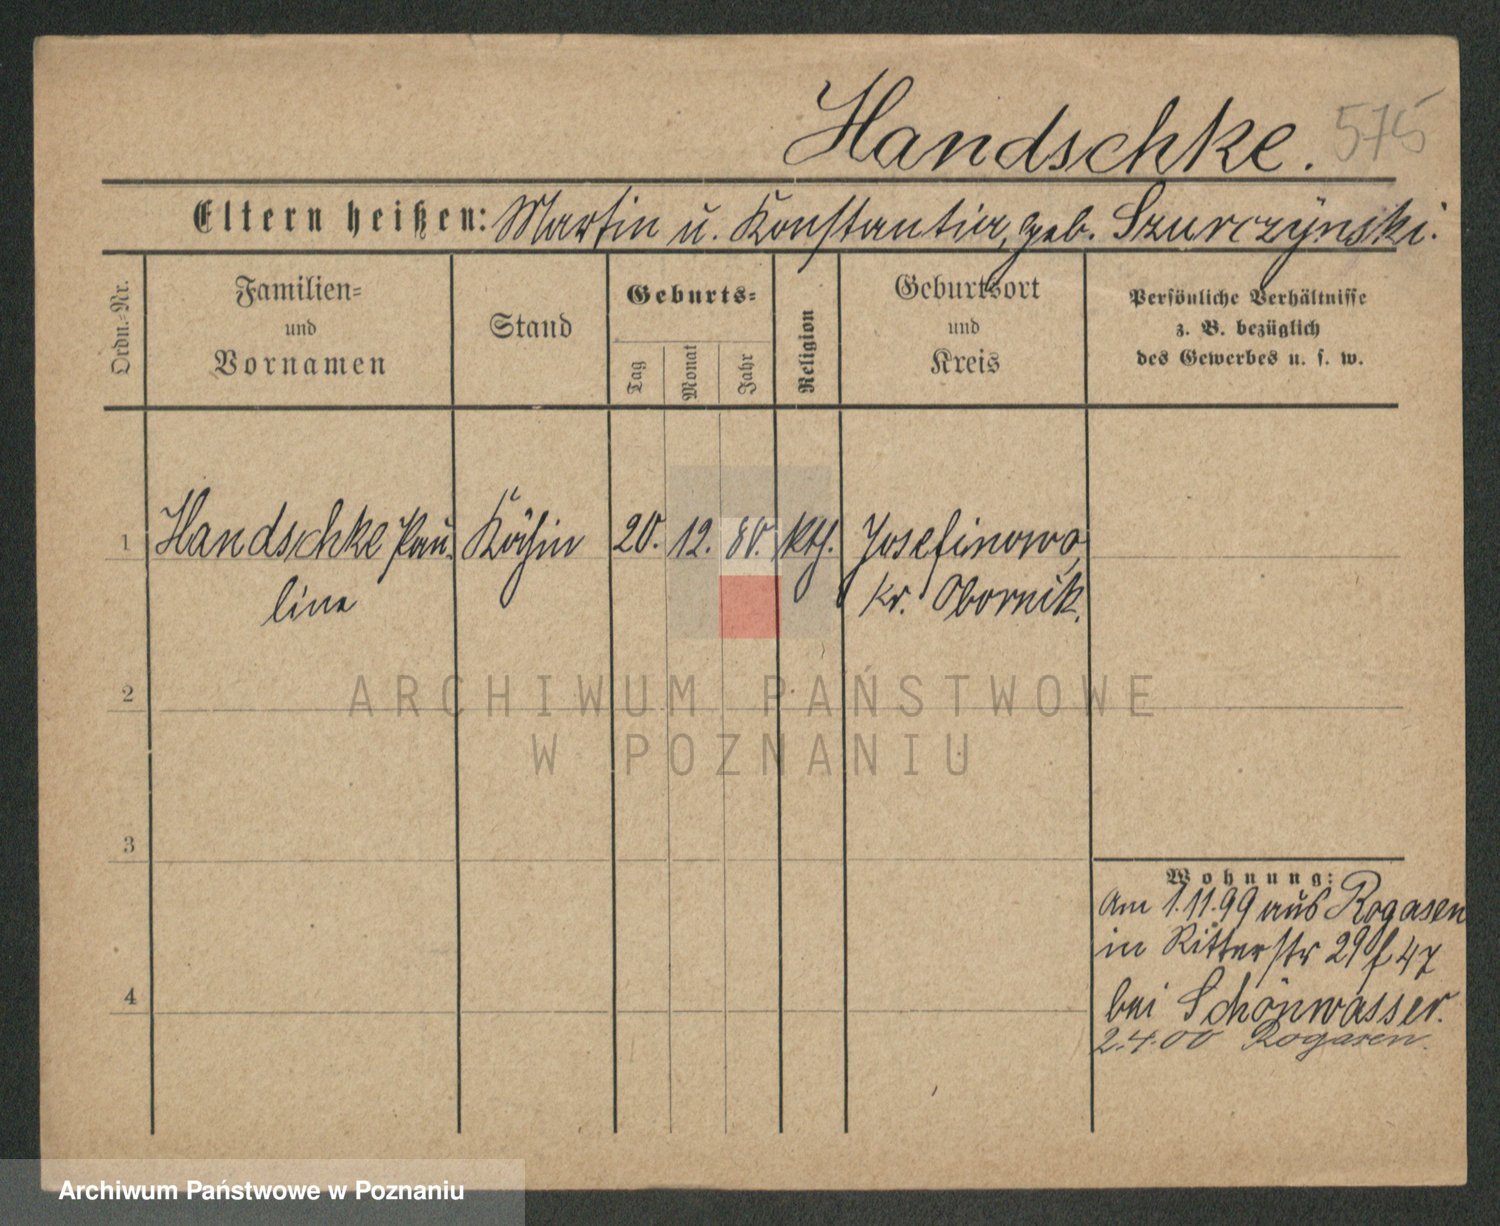 Handschke. 575
Eltern heißen: Martin u. Konstantia, geb. Szurczynski.
Ordn.-Nr.
Familien-
und
Vornamen
Stand
Geburts-
Tag
Monat
Jahr
Religion
Geburtsort
und
Kreis
Persönliche Verhältnisse
z. B. bezüglich
des Gewerbes u. s. w.
1 Handschke Pau- Köchin 20. 12. 80. kth. Josefinowo,
line kr. Obornik.
ARCHIWUM PAŃSTWOWE
W POZNANIU
2
3
4
Wohnung:
Am 1.11.99 aus Rogasen
in Ritterstr 29 f 47
bei Schönwasser.
2.4.00 Rogasen.
Archiwum Państwowe w Poznaniu